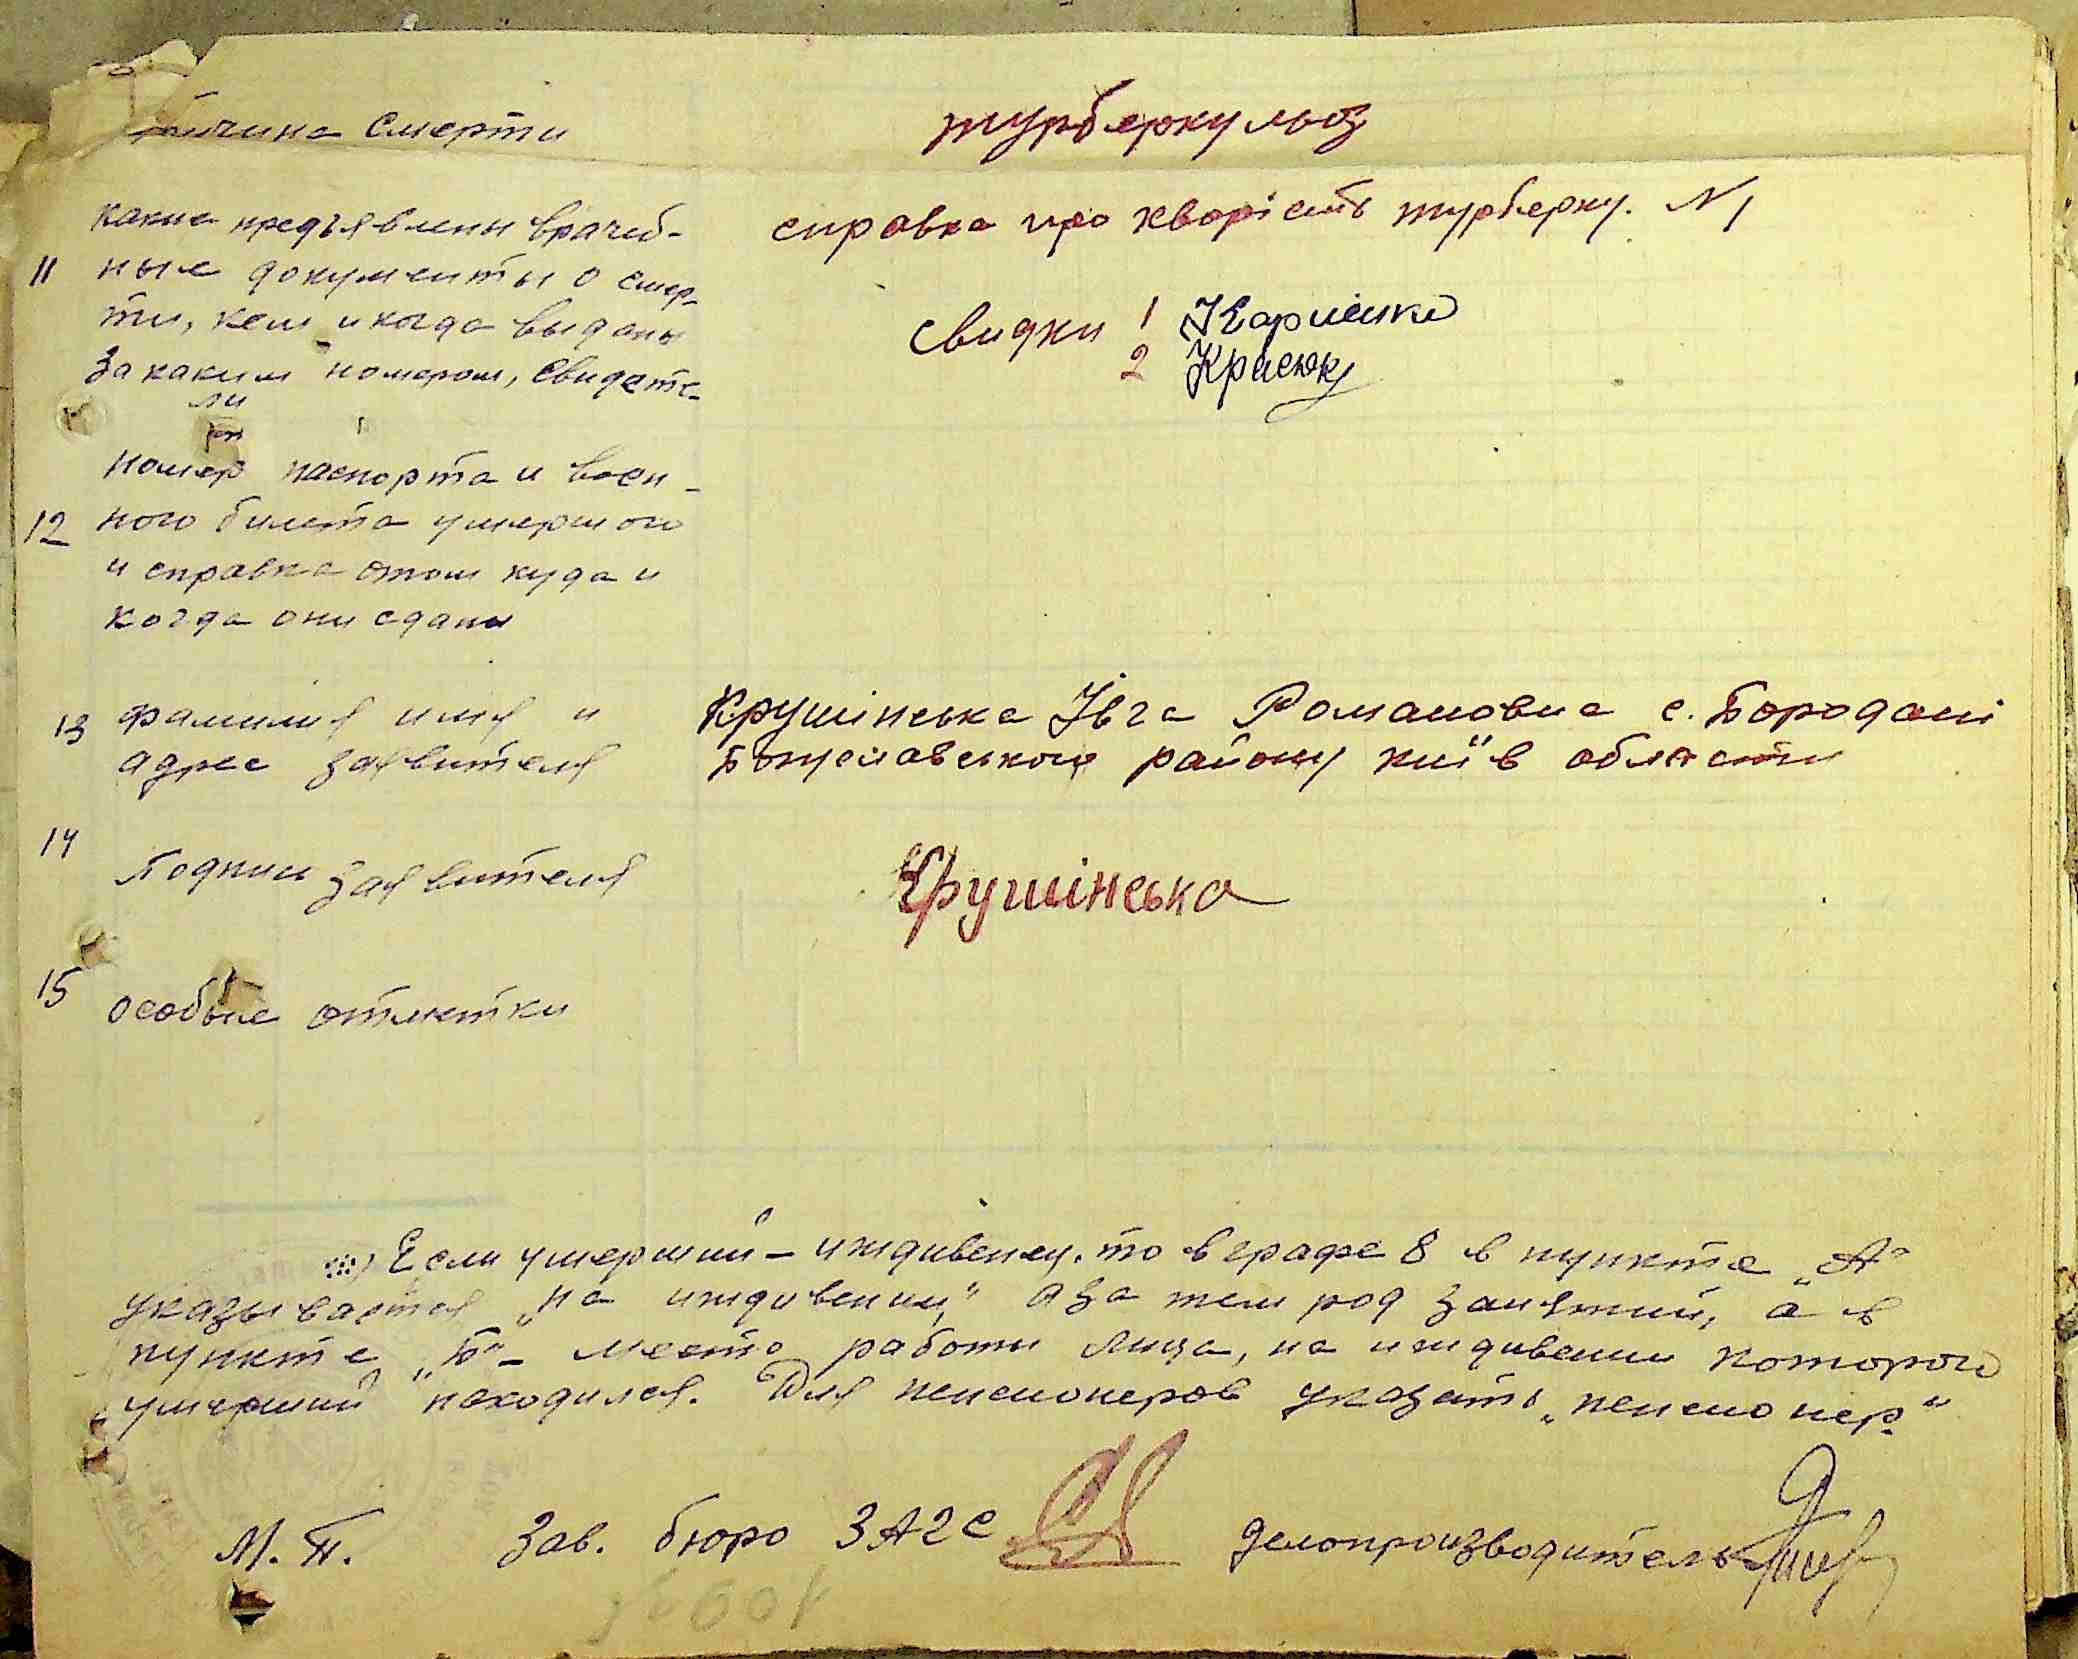 причина смерти турберкульоз
какие предъявлены врачеб-
справка про хворість турберку. N 1
11 ные документы о смер-
ти, кем и когда выданы
свидки 1
за каким номером, свидете-
ли
2 Красюк
номер паспорта и воен-
12 ного билета умершого
и справка отом куда и
когда они сданы
13 фамилия имя и Крушінська Івга Романовна с. Бородані
адрес заявителя Богуславського району київ области
14 Подпись заявителя Крушінська
15 особые отметки
Если умерший - иждивенец, то в графе 8 в пункте „А"
указывается „на иждивении," а за тем род занятий, а в
пункте „Б" - место работы лица, на иждивении которого
умерший находился. Для пенсионеров указать „пенсионер."
М. П. Зав. бюро ЗАГС делопроизводитель